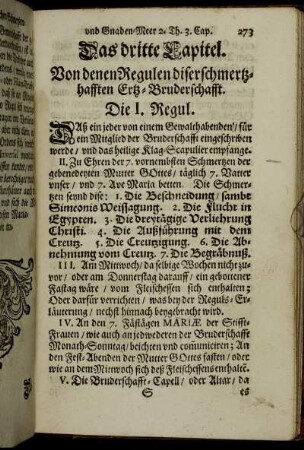 und Gnaden-Meer 2. Th. 3. Cap. 273
Das dritte Capitel.
Von denen Regulen diser schmertz-
hafften Ertz-Bruderschafft.
Die I. Regul.
Daß ein jeder von einem Gewalthabenden/ für
ein Mitglied der Bruderschafft eingeschriben
werde/ und das heilige Klag-Scapulier empfange.
II. Zu Ehren der 7. vornembsten Schmertzen der
gebenedeyten Mutter GOttes/ täglich 7. Vatter
unser/ und 7. Ave Maria betten. Die Schmer-
tzen seynd dise: 1. Die Beschneidung/ sambt
Simeonis Weissagung. 2. Die Flucht in
Egypten. 3. Die dreytägige Verliehrung
Christi. 4. Die Außführung mit dem
Creutz. 5. Die Creutzigung. 6. Die Ab-
nehmung vom Creutz. 7. Die Begräbnuß.
III. Am Mittwoch/ da selbige Wochen nicht zu-
vor/ oder am Donnerstag darauf/ ein gebottener
Fastag wäre/ vom Fleischessen sich enthalten;
Oder darfür verrichten/ was bey der Reguls-Er-
läuterung/ nechst hinnach beygebracht wird.
IV. An den 7. Fästägen MARIÆ der Stifft-
Frauen/ wie auch an jedwederen der Bruderschafft
Monath-Sonntag/ beichten und co&#772;municiren; An
den Fest-Abenden der Mutter GOttes fasten/ oder
wie an dem Mittwoch sich deß Fleischessens enthalte&#772;.
V. Die Bruderschafft-Capell/ oder Altar/ da
S es